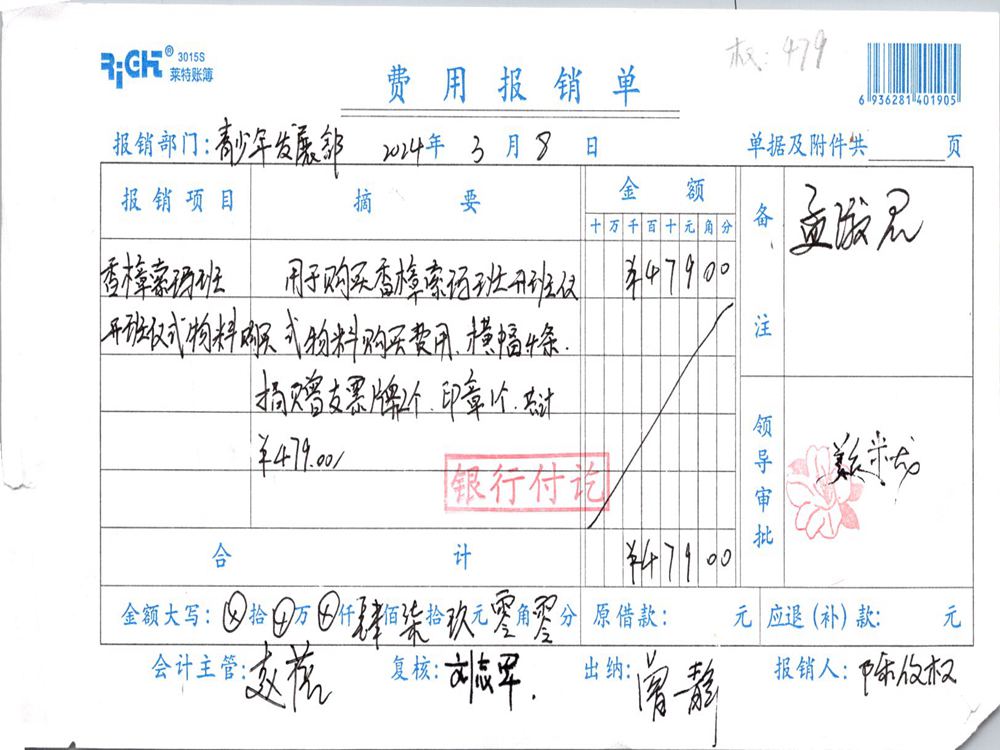 RiGHT® 3015S
莱特账簿
权: 479
费用报销单
6 936281 401905
报销部门: 青少年发展部 2024年 3月 8日 单据及附件共 页
报销项目 摘要 金额 备注
十万千百十元角分
香樟索玛班 用于购买香樟索玛班开班仪 ¥47900
开班仪式物料购买 式物料购买费用、横幅4条、
捐赠支票牌2个、印章1个.共计
¥479.00/
银行付讫
领导审批
合计 ¥47900
金额大写: ⊗拾⊗万⊗仟肆佰柒拾玖元零角零分 原借款: 元 应退(补)款: 元
会计主管: 复核: 刘志军. 出纳: 曾静 报销人: 陈仪权